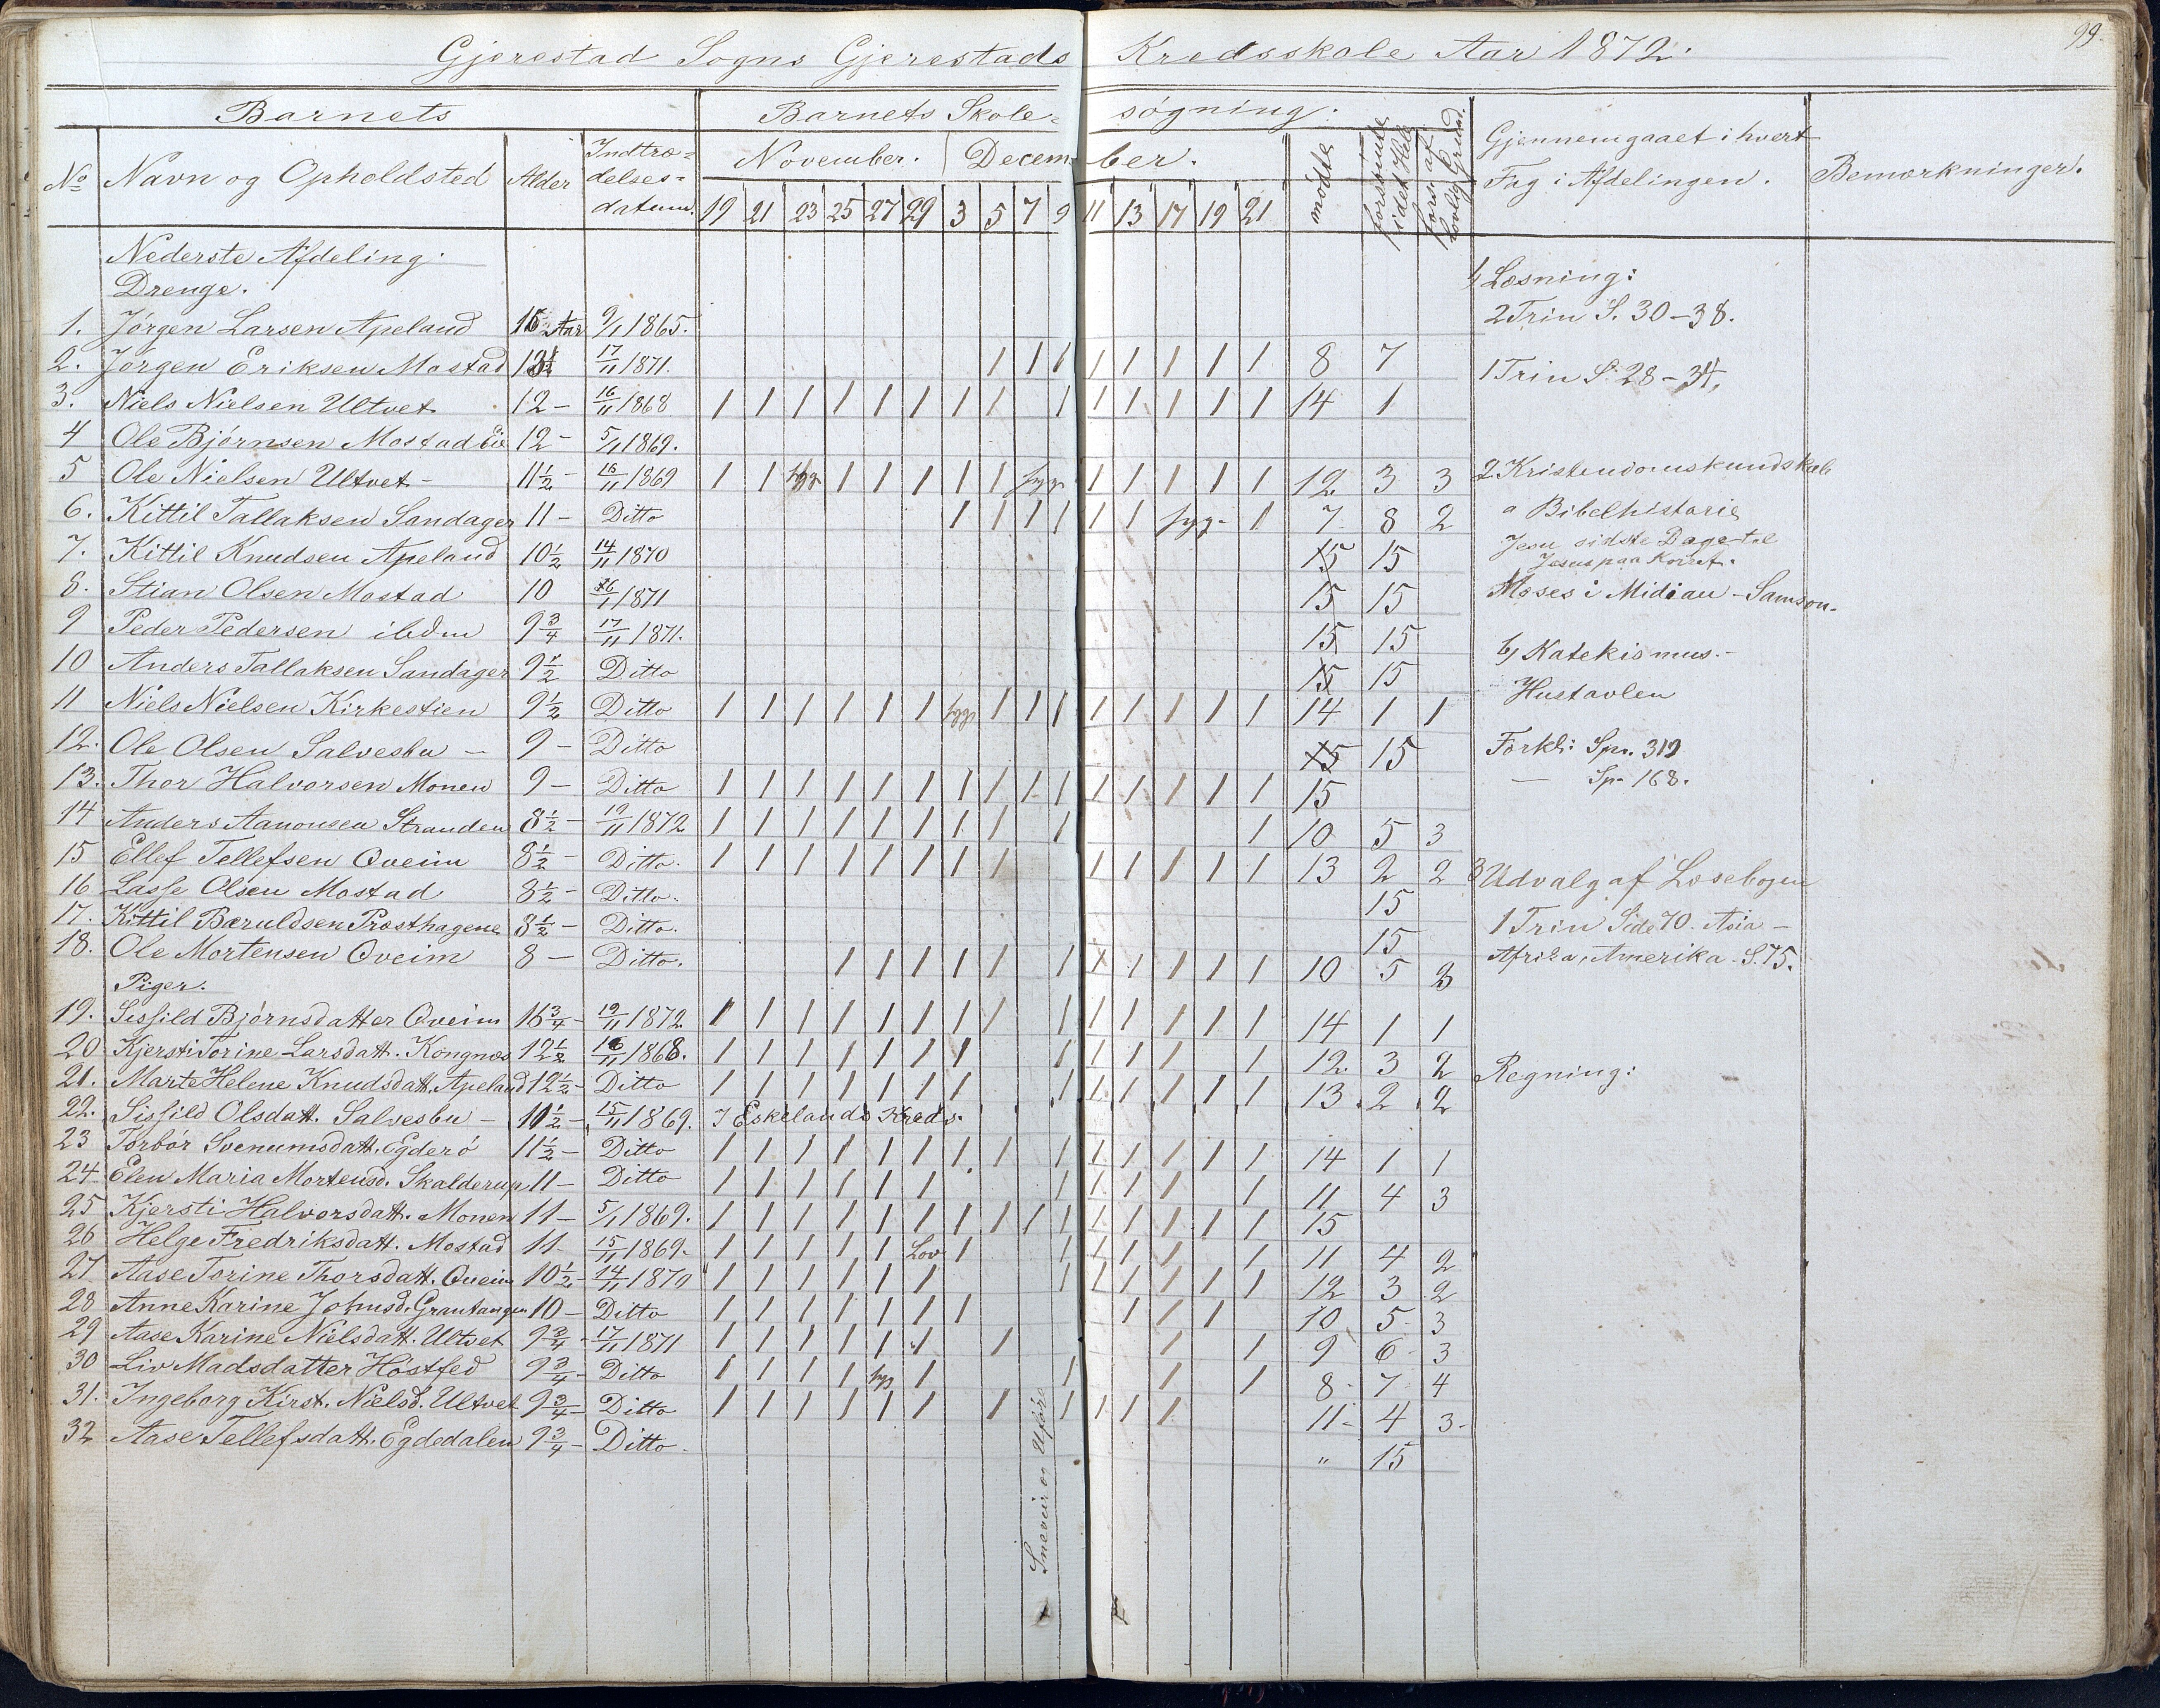 99.
Gjerestad Sogns Gjerestads Kredsskole Aar 1872.
Barnets | Barnets Skole=søgning.
No | Navn og Opholdsted | Alder | Indtræ=delses=datum. | November. | December. | mødte | forsømte i det Hele | fors. af lovlig Grund. | Gjennemgaaet i hvert Fag i Afdelingen. | Bemærkninger.
19 21 23 25 27 29 3 5 7 9 11 13 17 19 21
Nederste Afdeling.
Drenge.
1. Jørgen Larsen Apeland 15 Aar 9/1 1865.
2. Jørgen Eriksen Mostad 17/11 1871. 1 1 1 1 1 1 1 1 8 7
3. Niels Nielsen Ultvet 12 - 16/11 1868 1 1 1 1 1 1 1 1 1 1 1 1 1 1 14 1
4 Ole Bjørnsen Mostad Eie 12 - 5/11 1869.
5 Ole Nielsen Ultvet - 11½ - 16/11 1869 1 1 syg 1 1 1 1 1 syg 1 1 1 1 1 12 3 3
6. Kittil Tallaksen Sandager 11 - Ditto 1 1 1 1 1 1 syg - 1 7 8 2
7. Kittil Knudsen Apeland 10½ 14/11 1870 15 15
8. Stian Olsen Mostad 10 16/1 1871 15 15
9 Peder Pedersen ibdm 9¾ 17/11 1871. 15 15
10 Anders Tallaksen Sandager 9½ Ditto 15 15
11 Niels Nielsen Kirkestien 9½ Ditto 1 1 1 1 1 1 syg 1 1 1 1 1 1 1 1 14 1 1
12. Ole Olsen Salvesbu - 9 - Ditto 15 15
13. Thor Halvorsen Monen 9 - Ditto 1 1 1 1 1 1 1 1 1 1 1 1 1 1 1 15
14 Anders Aanonsen Stranden 8½ - 19/11 1872 1 1 1 1 1 1 1 1 1 1 10 5 3
15 Ellef Tellefsen Oveim 8½ - Ditto. 1 1 1 1 1 1 1 1 1 1 1 1 1 13 2 2
16 Lasse Olsen Mostad 8½ - Ditto. 15
17. Kittil Bæruldsen Præsthagene 8½ - Ditto. 15
18. Ole Mortensen Oveim 8 - Ditto. 1 1 1 1 1 1 1 1 1 1 1 10 5 3
Piger.
19. Sissild Bjørnsdatter Oveim 16¾ - 19/11 1872. 1 1 1 1 1 1 1 1 1 1 1 1 1 1 14 1 1
20 Kjersti Torine Larsdatt. Kongnæs 12½ 16/11 1868. 1 1 1 1 1 1 1 1 1 1 1 1 12. 3 2
21. Marte Helene Knudsdatt. Apeland 12½ - Ditto 1 1 1 1 1 1 1 1 1 1 1 1 1 13. 2 2
22. Sissild Olsdatt. Salvesbu - 11½ - 15/11 1869. I Eskelands Kreds.
23 Torbør Svenumsdatt. Egderø 11½ - Ditto 1 1 1 1 1 1 1 1 1 1 1 1 1 1 14 1 1
24 Elen Maria Mortensd. Skalderup 11 - Ditto 1 1 1 1 1 1 1 1 1 1 1 11 4 3
25 Kjersti Halvorsdatt. Monen 11 - 5/1 1869. 1 1 1 1 1 1 1 1 1 1 1 1 1 1 1 15
26 Helge Fredriksdatt. Mostad 11 - 15/11 1869. 1 1 1 1 1 Lov 1 1 1 1 1 1 11 4 2
27 Aase Torine Thorsdatt. Oveim 10½ - 14/11 1870 1 1 1 1 1 1 1 1 1 1 1 1 12 3 2
28 Anne Karine Johnsd. Grantangen 10 - Ditto 1 1 1 1 1 1 1 1 1 1 10 5 3
29 Aase Karine Nielsdatt. Ultvet 9¾ - 17/11 1871 1 1 1 1 1 1 1 1 1 9 6 3
30 Liv Madsdatter Høstfed 9¾ - Ditto 1 1 1 1 syg 1 1 1 1 8 - 7 4
31. Ingeborg Kirst. Nielsd. Ultvet 9¾ - Ditto 1 1 1 1 1 1 1 1 1 1 1 11 - 4 3 -
32 Aase Tellefsdatt. Egdedalen 9¾ - Ditto - " 15
Sneveir og Uføre
1/ Læsning:
2 Trin S. 30 - 38.
1 Trin S. 28 - 34,
2 Kristendomskundskab
a Bibelhistorie
Jesu sidste Dage til
Jesus paa Korset.
Moses i Midian - Samson -
b) Katekismus. -
Hustavlen
Forkl: Spr. 319
— Sp. 168.
3 Udvalg af Læsebogen
1 Trin Side 70. Asia -
Afrika, Amerika. S. 75.
Regning: